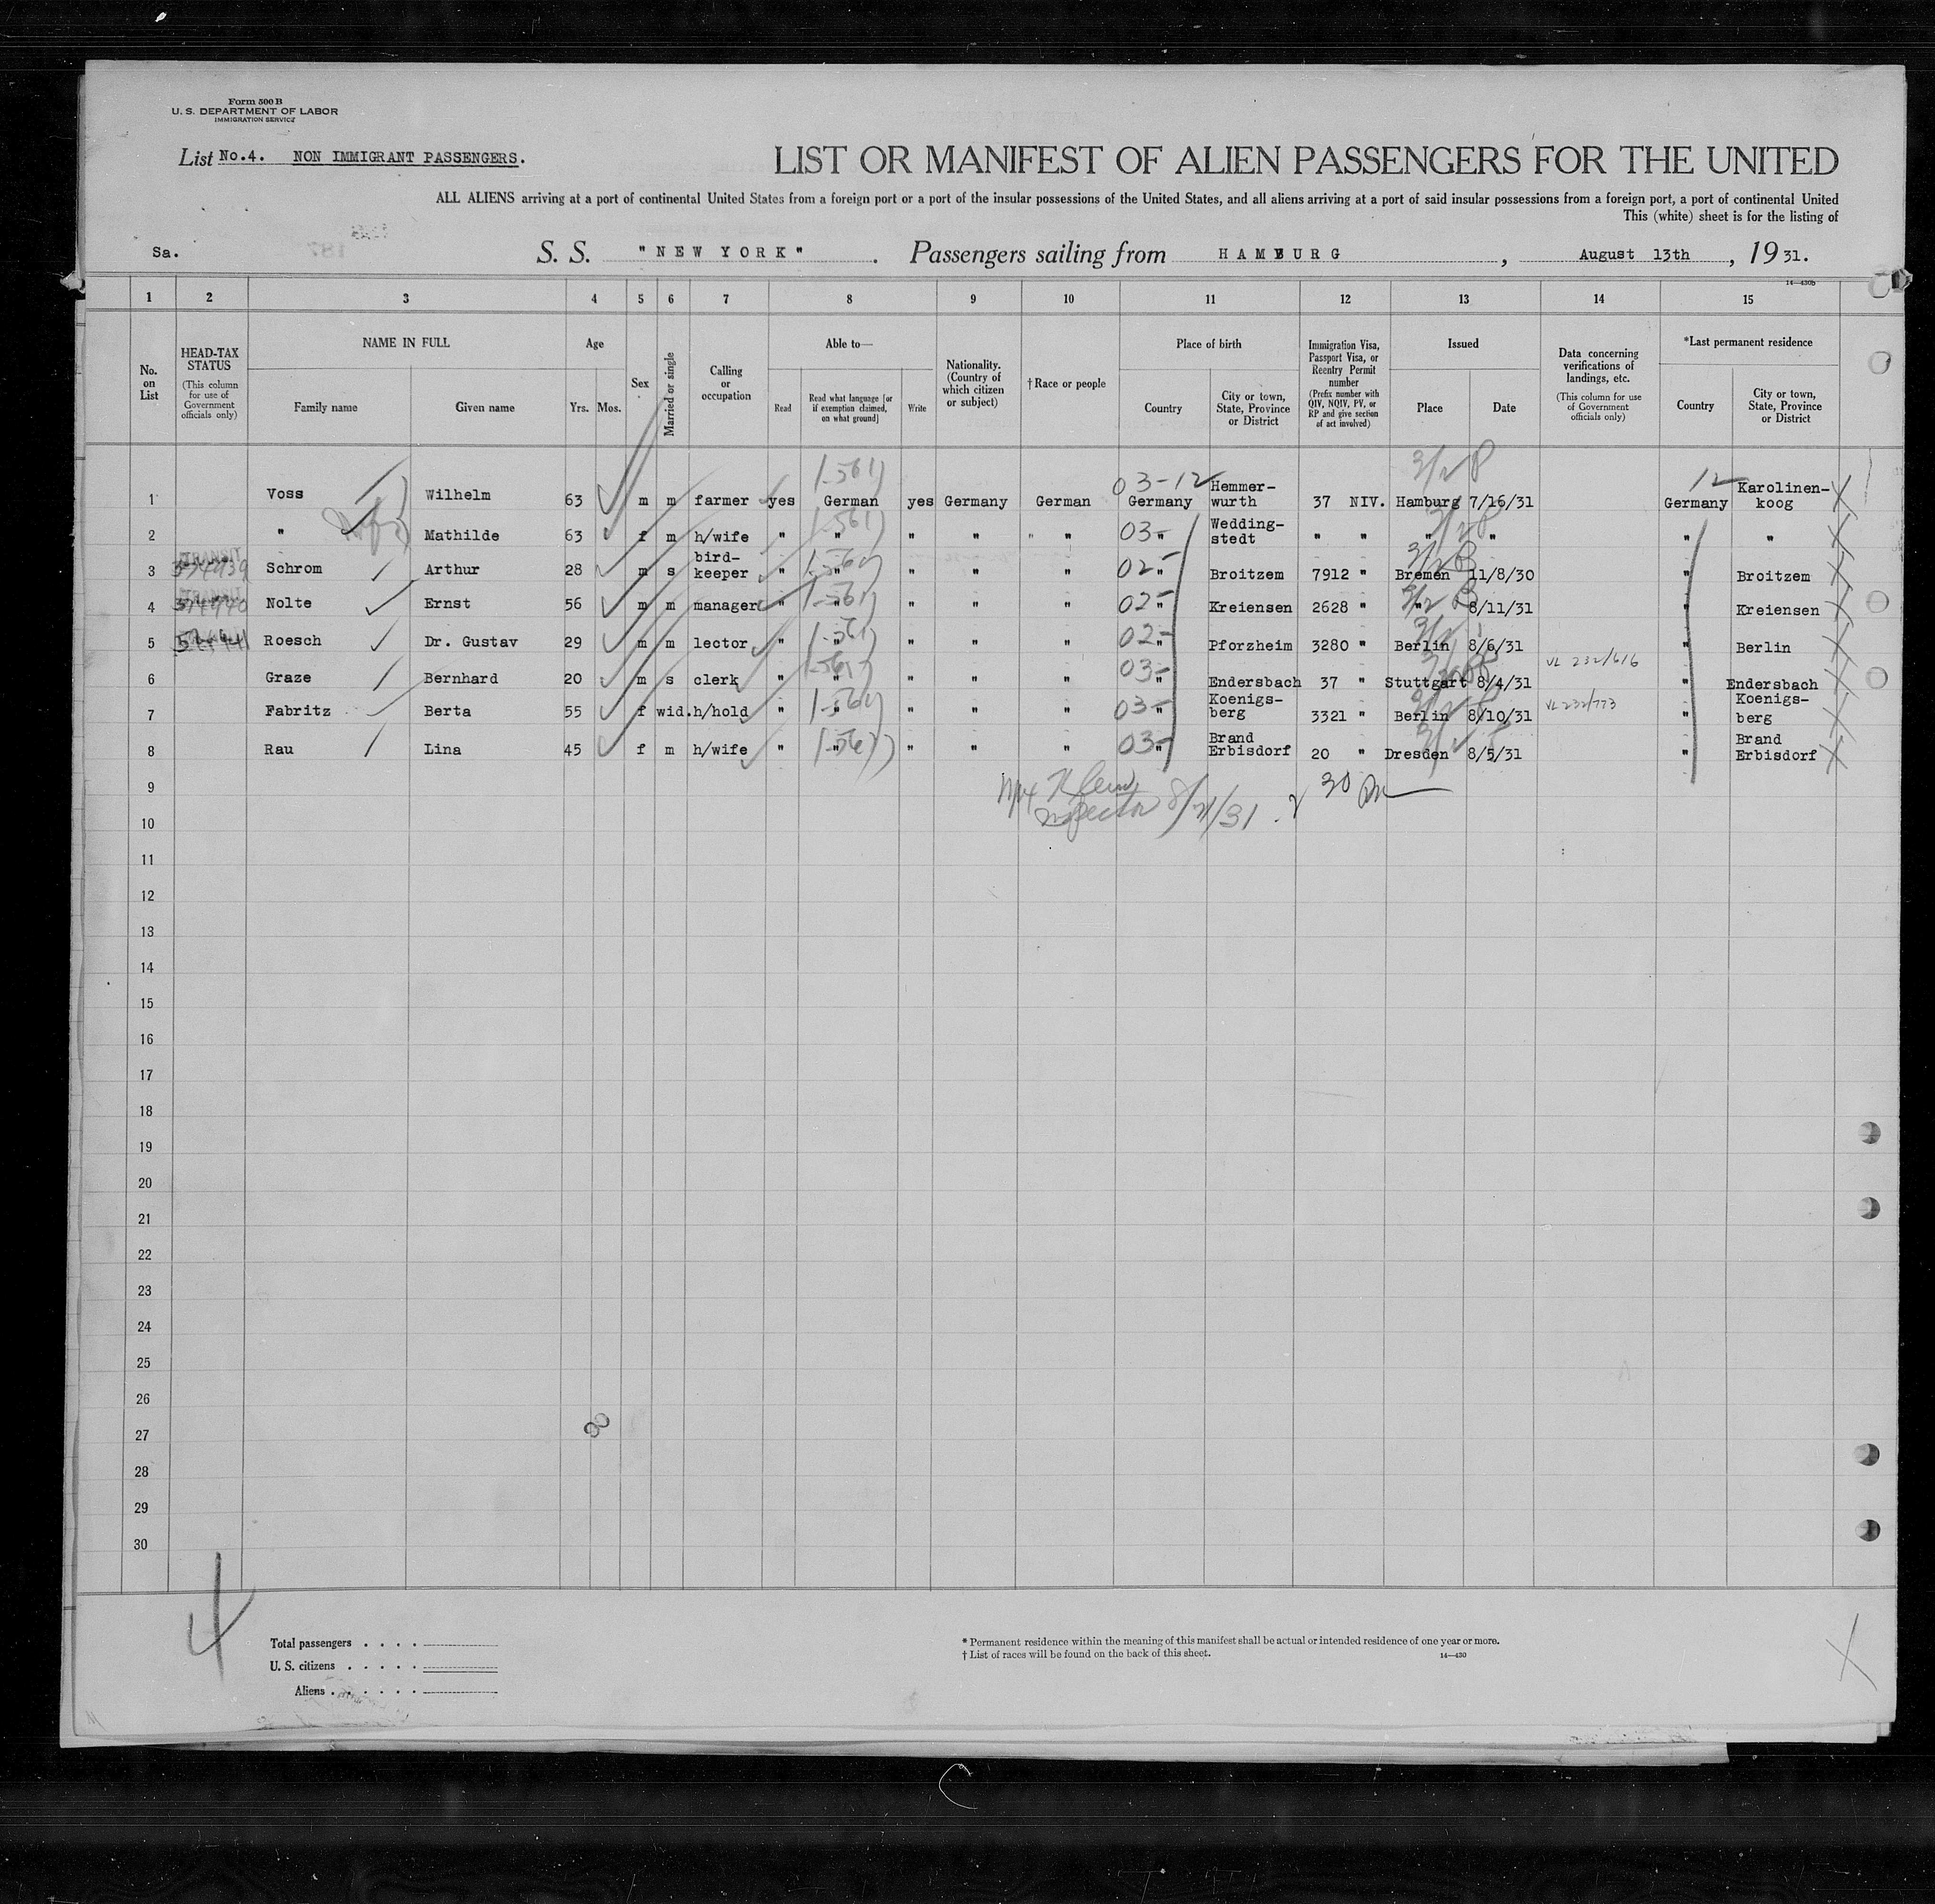 Form 500 B
U. S. DEPARTMENT OF LABOR
IMMIGRATION SERVICE
List No.4. NON IMMIGRANT PASSENGERS.
LIST OR MANIFEST OF ALIEN PASSENGERS FOR THE UNITED
ALL ALIENS arriving at a port of continental United States from a foreign port or a port of the insular possessions of the United States, and all aliens arriving at a port of said insular possessions from a foreign port, a port of continental United
This (white) sheet is for the listing of
Sa. S. S. "NEW YORK". Passengers sailing from HAMBURG, August 13th, 1931.
14—430b
1 2 3 4 5 6 7 8 9 10 11 12 13 14 15
No. on List
HEAD-TAX STATUS (This column for use of Government officials only)
NAME IN FULL
Family name Given name
Age
Yrs. Mos.
Sex
Married or single
Calling or occupation
Able to—
Read Read what language [or if exemption claimed, on what ground] Write
Nationality. (Country of which citizen or subject)
†Race or people
Place of birth
Country City or town, State, Province or District
Immigration Visa, Passport Visa, or Reentry Permit number (Prefix number with QIV, NQIV, PV, or RP and give section of act involved)
Issued
Place Date
Data concerning verifications of landings, etc. (This column for use of Government officials only)
*Last permanent residence
Country City or town, State, Province or District
1 Voss Wilhelm 63 m m farmer yes German yes Germany German 03-12 Germany Hemmer-wurth 37 NIV. Hamburg 7/16/31 12 Germany Karolinen-koog
2 " Mathilde 63 f m h/wife " " " " " 03- " Wedding-stedt " " " " " "
3 Schrom Arthur 28 m s bird-keeper " " " " " 02- " Broitzem 7912 " Bremen 11/8/30 " Broitzem
4 Nolte Ernst 56 m m manager " " " " " 02- " Kreiensen 2628 " " 8/11/31 " Kreiensen
5 Roesch Dr. Gustav 29 m m lector " " " " " 02- " Pforzheim 3280 " Berlin 8/6/31 " Berlin
6 Graze Bernhard 20 m s clerk " " " " " 03- " Endersbach 37 " Stuttgart 8/4/31 VL 232/616 " Endersbach
7 Fabritz Berta 55 f wid. h/hold " " " " " 03- " Koenigs-berg 3321 " Berlin 8/10/31 VL 232/773 " Koenigs-berg
8 Rau Lina 45 f m h/wife " " " " " 03- " Brand Erbisdorf 20 " Dresden 8/5/31 " Brand Erbisdorf
9
Inspector 8/21/31 30
10
11
12
13
14
15
16
17
18
19
20
21
22
23
24
25
26
27
28
29
30
4
Total passengers . . . .
U. S. citizens . . . . .
Aliens . . . . . .
* Permanent residence within the meaning of this manifest shall be actual or intended residence of one year or more.
† List of races will be found on the back of this sheet. 14—430